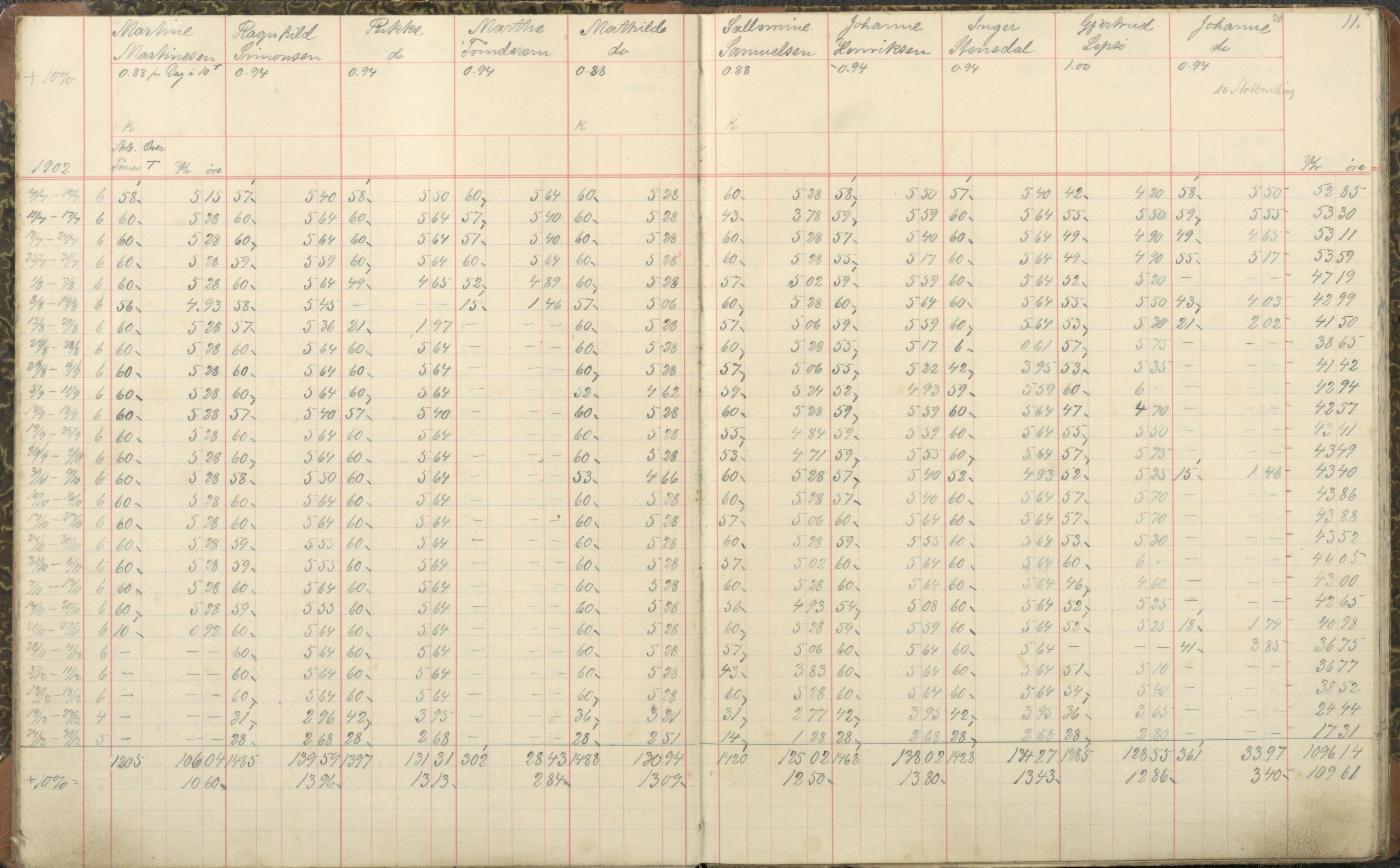 Martine Ragnhild Rikke Marthe Mathilde Sallomine Johanne Inger Gjertrud Johanne 11.
Martinesen Simonsen do Tønderøen do Samuelsen Henriksen Stensdal Lepsø do
+ 10% 0.88 pr Dag à 10 T 0.94 0.94 0.94 0.88 0.88 0.94 0.94 1.00 0.94
se Notbinding
K K K
Arb. Over
1902 Timer T Kr. øre Kr øre
6 58 5 15 57 5 40 58 5 50 60 5 64 60 5 28 60 5 28 58 5 50 57 5 40 42 4 20 58 5 50 52 85
6 60 5 28 60 5 64 60 5 64 57 5 40 60 5 28 43 3 78 59 5 59 60 5 64 55 5 50 59 5 55 53 30
6 60 5 28 60 5 64 60 5 64 57 5 40 60 5 28 60 5 28 57 5 40 60 5 64 49 4 90 49 4 65 53 11
6 60 5 28 59 5 59 60 5 64 60 5 64 60 5 28 60 5 28 55 5 17 60 5 64 49 4 90 55 5 17 53 59
6 60 5 28 60 5 64 49 4 65 52 4 89 60 5 28 57 5 02 59 5 59 60 5 64 52 5 20 – – 47 19
6 56 4.93 58 5 45 – – 15 1 46 57 5 06 60 5 28 60 5 64 60 5 64 55 5 50 43 4 03 42 99
6 60 5 28 57 5 36 21 1 97 – – 60 5 28 57 5 06 59 5 59 60 5 64 53 5 30 21 2 02 41 50
6 60 5 28 60 5 64 60 5 64 – – 60 5 28 60 5 28 55 5 17 6 0 61 57 5 75 – – 38 65
6 60 5 28 60 5 64 60 5 64 – – 60 5 28 57 5 06 55 5 22 42 3 95 53 5 35 – – 41 42
6 60 5 28 60 5 64 60 5 64 – – 52 4 62 59 5 24 52 4 93 59 5 59 60 6 – – 42 94
6 60 5 28 57 5 40 57 5 40 – – 60 5 28 60 5 28 59 5 59 60 5 64 47 4 70 – – 42 57
6 60 5 28 60 5 64 60 5 64 – – 60 5 28 55 4 84 59 5 59 60 5 64 55 5 50 – – 43 41
6 60 5 28 60 5 64 60 5 64 – – 60 5 28 53 4 71 59 5 55 60 5 64 57 5 75 – – 43 49
6 60 5 28 58 5 50 60 5 64 – – 53 4 66 60 5 28 57 5 40 52 4 93 52 5 25 15 1 46 43 40
6 60 5 28 60 5 64 60 5 64 – – 60 5 28 60 5 28 57 5 40 60 5 64 57 5 70 – – 43 86
6 60 5 28 60 5 64 60 5 64 – – 60 5 28 57 5 06 60 5 64 60 5 64 57 5 70 – – 43 88
6 60 5 28 59 5 55 60 5 64 – – 60 5 28 60 5 28 59 5 55 60 5 64 53 5 30 – – 43 52
6 60 5 28 59 5 55 60 5 64 – – 60 5 28 57 5 02 60 5 64 60 5 64 60 6 – – 44 05
6 60 5 28 60 5 64 60 5 64 – – 60 5 28 60 5 28 60 5 64 60 5 64 46 4 60 – – 43 00
6 60 5 28 59 5 55 60 5 64 – – 60 5 28 56 4 93 54 5 08 60 5 64 52 5 25 – – 42 65
6 10 0 92 60 5 64 60 5 64 – – 60 5 28 60 5 28 59 5 59 60 5 64 52 5 25 18 1 74 40 98
6 – – 60 5 64 60 5 64 – – 60 5 28 57 5 06 60 5 64 60 5 64 – – 41 3 85 36 75
6 – – 60 5 64 60 5 64 – – 60 5 28 43 3 83 60 5 64 60 5 64 51 5 10 – – 36 77
6 – – 60 5 64 60 5 64 – – 60 5 28 60 5 28 60 5 64 60 5 64 54 5 40 – – 38 52
4 – – 31 2 96 42 3 95 – – 36 3 21 31 2 77 42 3 95 42 3 95 36 3 65 – – 24 44
5 – – 28 2 68 28 2 68 – – 28 2 51 14 1 28 28 2 68 28 2 68 28 2 80 – – 17 31
1205 106 04 1485 139 59 1397 131 31 302 28 43 1488 130 94 1420 125 02 1468 138 02 1428 134 27 1285 128 55 361 33.97 1096 14
+ 10% = 10 60 13 96 13 13 2 84 13 09 12 50 13 80 13 43 12 86 3 40 109 61